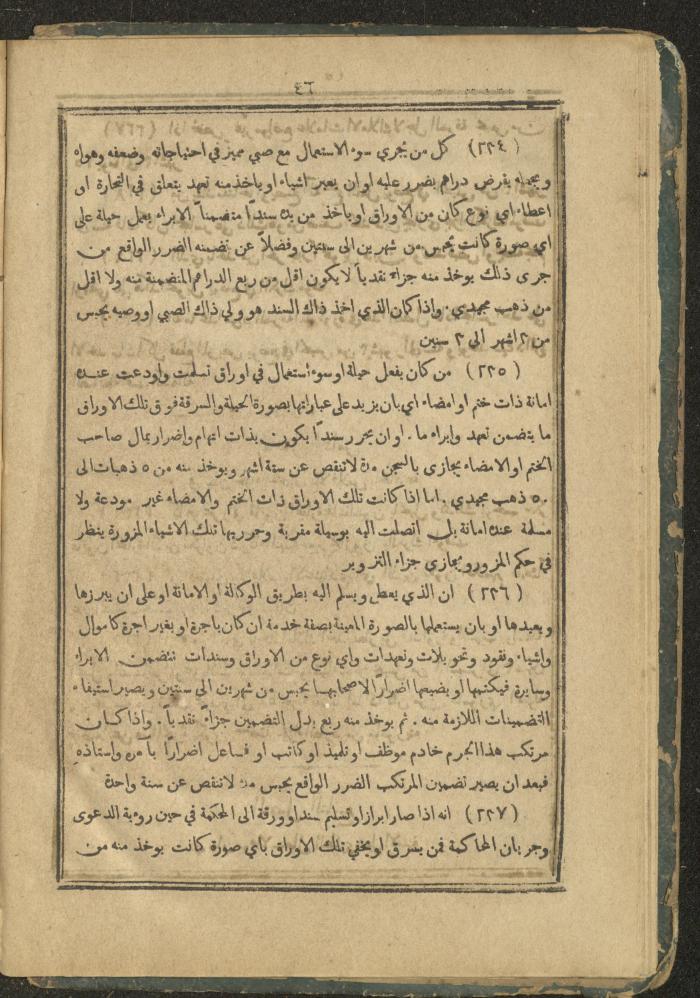 ٤٦
( ٢٢٤ ) كل من يجري سوء الاستعمال مع صبي مميز في احتياجاته وضعفه وهواه
ويجمله بقرض دراهم بضرر عليه او ان يعير اشياء او ياخذ منه تعهد يتعلق في التجارة او
اعطاء اي نوع كان من الاوراق او ياخذ من يده سنداً متضمناً الابراء بعمل حيلة على
اي صورة كانت يحبس من شهرين الى سنتين وفضلاً عن تضمنه الضرر الواقع من
جرى ذلك يوخذ منه جزاء نقدياً لا يكون اقل من ربع الدراهم المتضمنة منه ولا اقل
من ذهب مجيدي . واذا كان الذي اخذ ذاك السند هو ولي ذاك الصبي او وصيه يحبس
من ٢ اشهر الى ٣ سنين
( ٢٢٥ ) من كان يفعل حيلة او سوء استعمال في اوراق تسلمت واودعت عنده
امانة ذات ختم او امضاء اي بان يزيد على عباراتها بصورة الحيلة والسرقة فوق تلك الاوراق
ما يتضمن تعهد وابراء ما . او ان يحرر سنداً يكون بذات اتهام واضرار بمال صاحب
الختم او الامضاء يجازى بالسجن مدة لا تنقص عن ستة اشهر ويوخذ منه من ٥ ذهبات الى
٥٠ ذهب مجيدي . اما اذا كانت تلك الاوراق ذات الختم والامضاء غير مودعة ولا
مسلمة عنده امانة بل اتصلت اليه بوسيلة مقربة وحرر بها تلك الاشياء المزورة ينظر
في حكم المزور ويجازي جزاء التزوير
( ٢٢٦ ) ان الذي يعطى ويسلم اليه بطريق الوكالة او الامانة او على ان يبرزها
ويعيدها او بان يستعملها بالصورة المعينة بصفة خدمة ان كان باجرة او بغير اجرة كاموال
واشياء ونقود وتحويلات وتعهدات واي نوع من الاوراق وسندات تتضمن الابراء
وسايرة فيكتمها او يضيعها اضراراً لاصحابها يحبس من شهرين الى سنتين ويصير استيفاء
التضمينات اللازمة منه . ثم يوخذ منه ربع بدل التضمين جزاءً نقدياً . واذا كان
مرتكب هذا الجرم خادم موظف او تلميذ او كاتب او فساعل اضراراً بآمره واستاذه
فبعد ان يصير تضمين المرتكب الضرر الواقع يحبس مدة لا تنقص عن سنة واحدة
( ٢٢٧ ) انه اذا صار ابراز او تسليم سند او ورقة الى المحكمة في حين روية الدعوى
وجريان المحاكمة فمن يسرق او يخفي تلك الاوراق باي صورة كانت يوخذ منه من